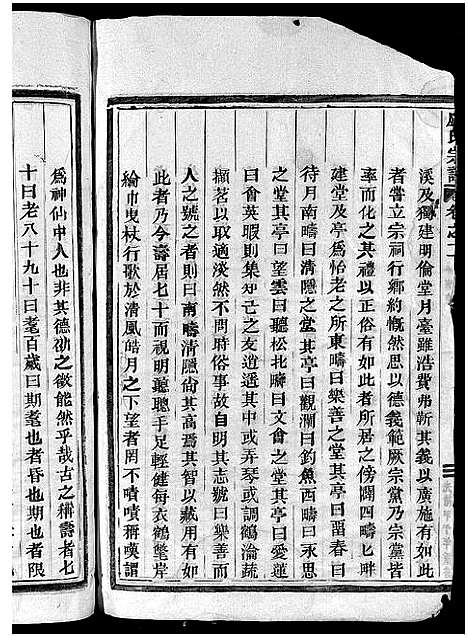 氏宗譜 卷之二
溪及獨建明倫堂月臺雖浩費弗靳其義以廣施有如此
者嘗立宗祠行鄉約慨然思以德義範厥宗黨乃宗黨皆
率而化之其禮以正俗有如此者所居之傍闢四疇匕畔
建堂及亭為怡老之所東疇曰樂善之堂其亭曰畱春曰
待月南疇曰清隱之堂其亭曰觀瀾曰釣魚西疇曰永思
之堂其亭曰望雲曰聽松北疇曰文會之堂其亭曰愛蓮
曰會英暇則集知己之友遨遊其中或弄琴或調鶴瀹蔬
擷茗以取適淡然不問時俗事故自明其志號曰樂善而
人之號之者則曰南疇清隱尙其高焉其智以藏用有如
此者乃今壽居七十而視明聽聰手足輕健每衣鶴氅岸
綸巾曳杖行歌於清風皓月之下望者罔不嘖嘖稱嘆謂
為神仙中人也非其德劭之徵能然乎哉古之稱壽者七
十曰老八十九十曰耄百歲曰期耄也者昏也期也者限